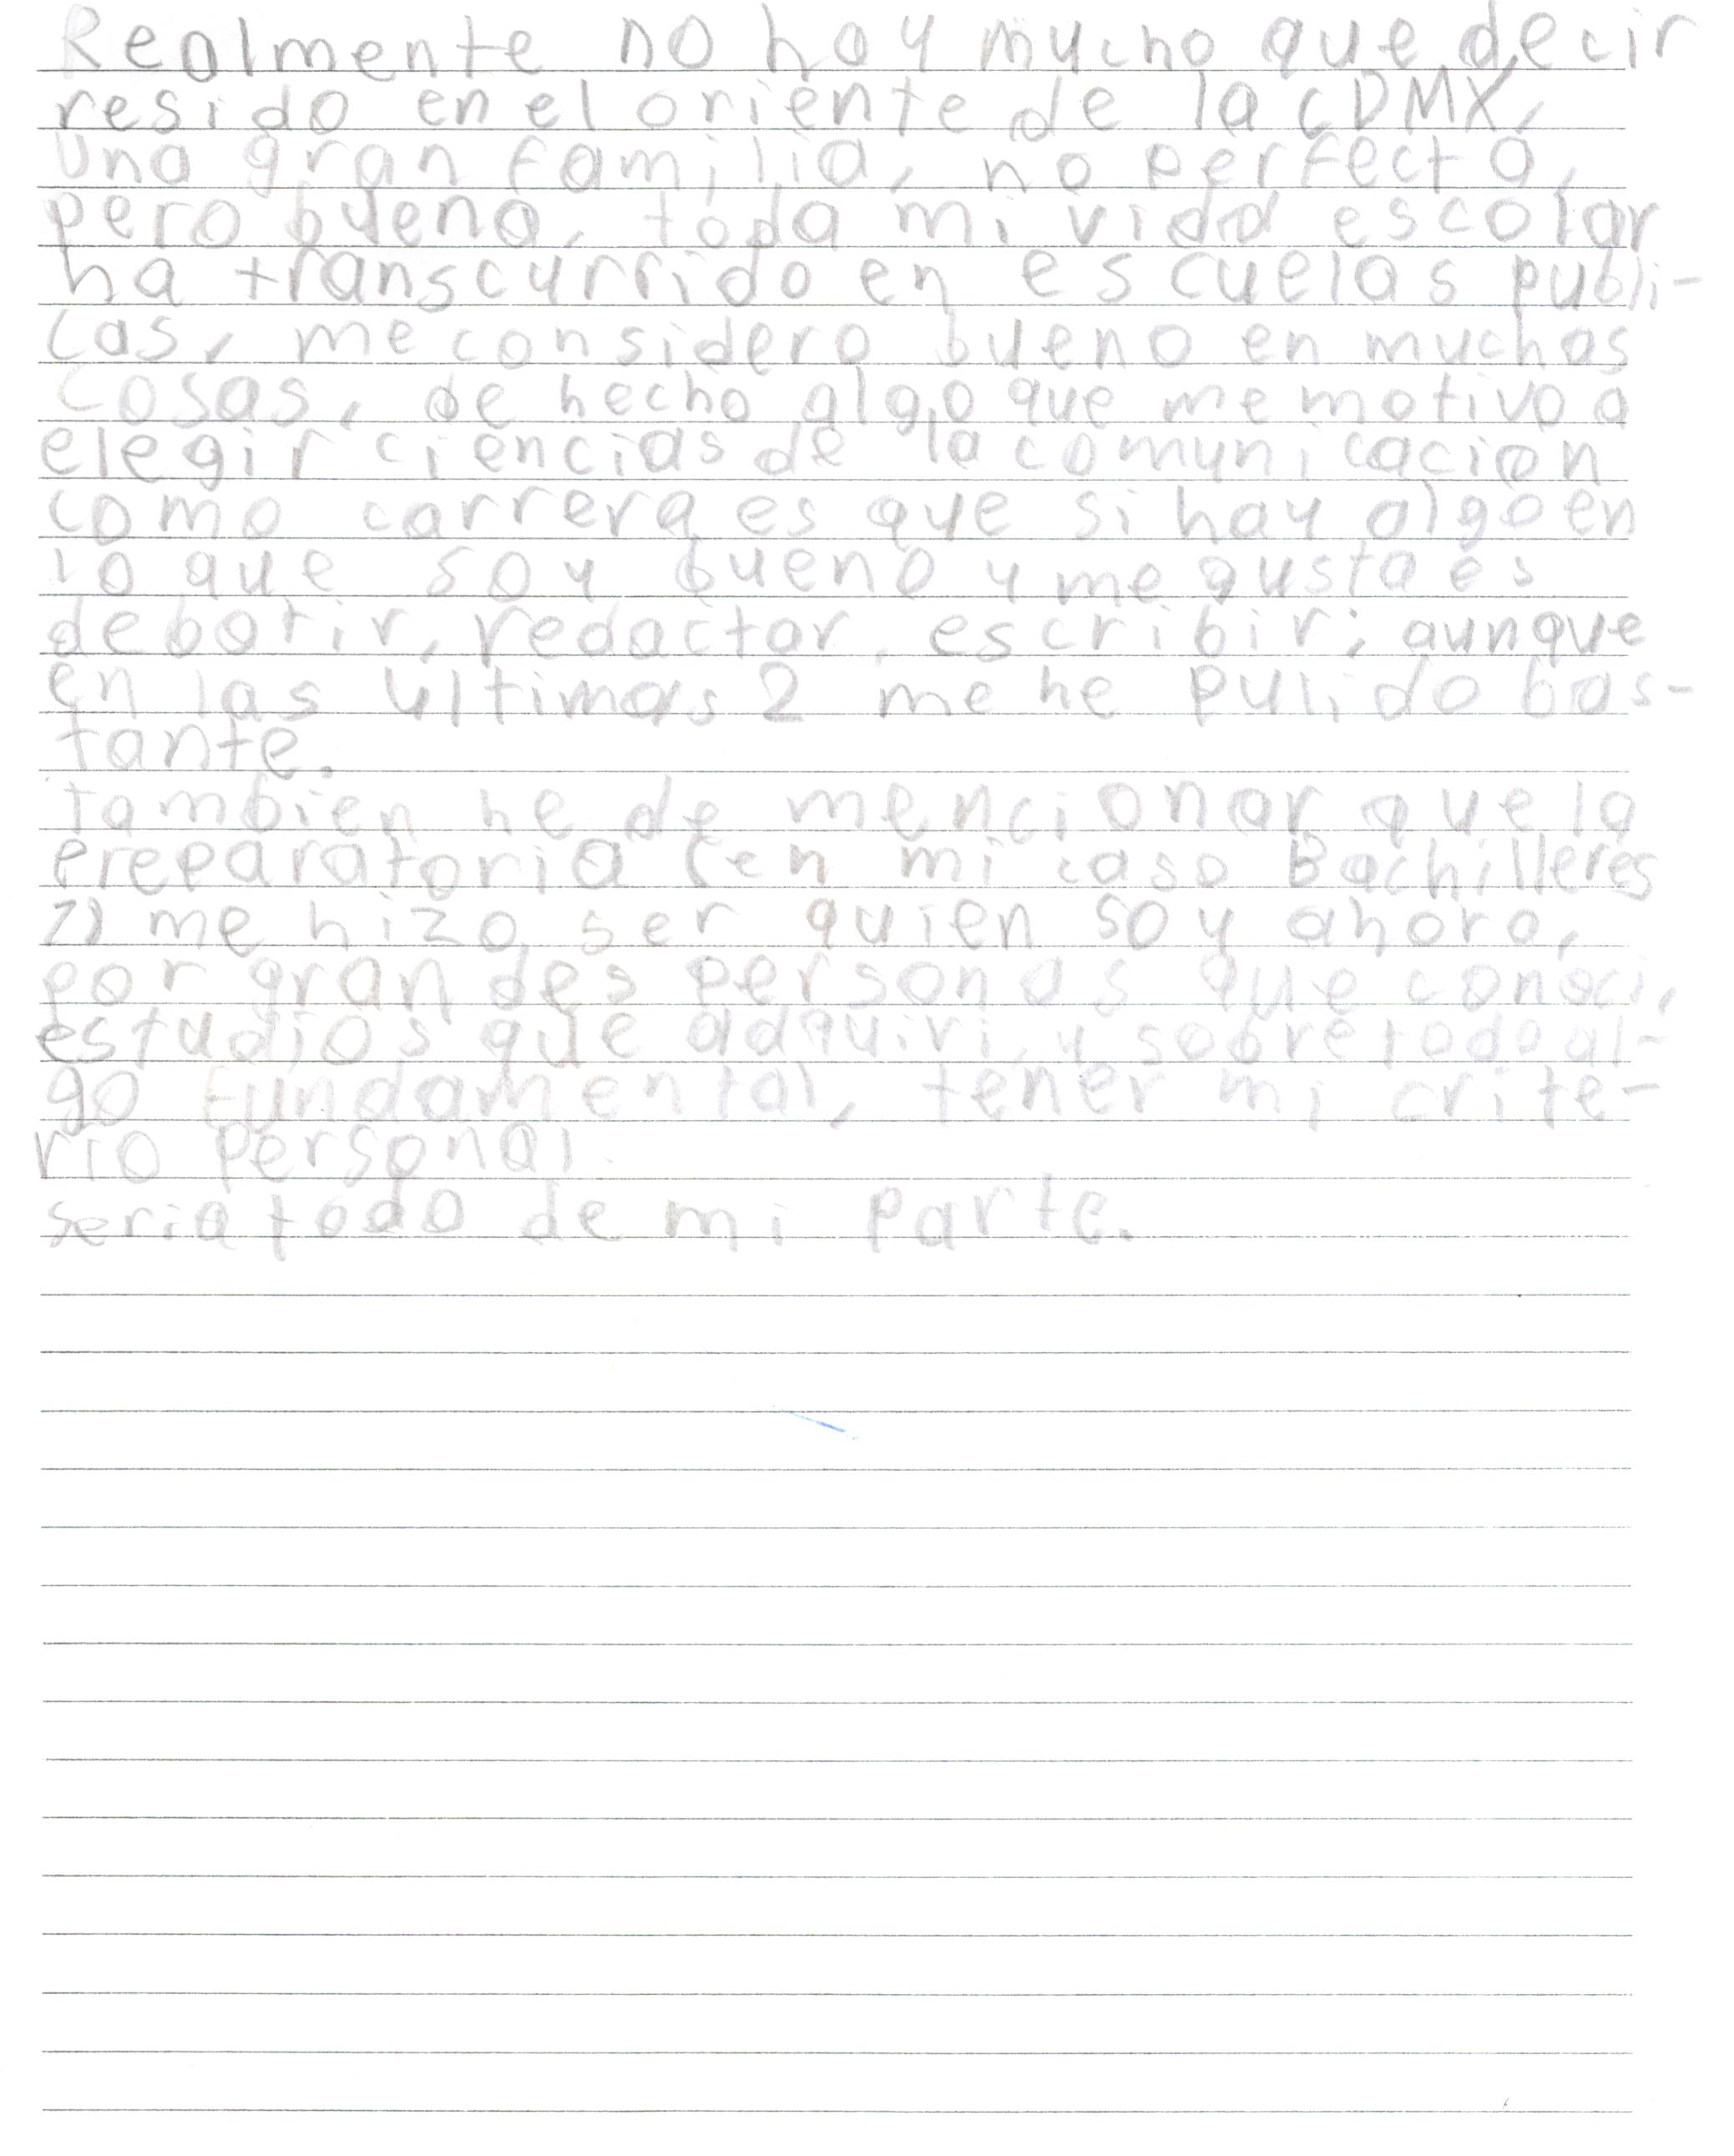 Realmente no hay mucho que decir
resido en el oriente de la CDMX,
una gran familia, no perfecta,
pero buena, toda mi vida escolar
ha transcurrido en escuelas publi-
cas, me considero bueno en muchas
cosas, de hecho algo que me motivo a
elegir ciencias de la comunicacion
como carrera es que si hay algo en
lo que soy bueno y me gusta es
debatir, redactar, escribir; aunque
en las últimas 2 me he pulido bas-
tante.
tambien he de mencionar que la
preparatoria (en mi caso Bachilleres
7) me hizo ser quien soy ahora,
por grandes personas que conoci,
estudios que adquiri, y sobre todo al-
go fundamental, tener mi crite-
rio personal.
seria todo de mi parte.